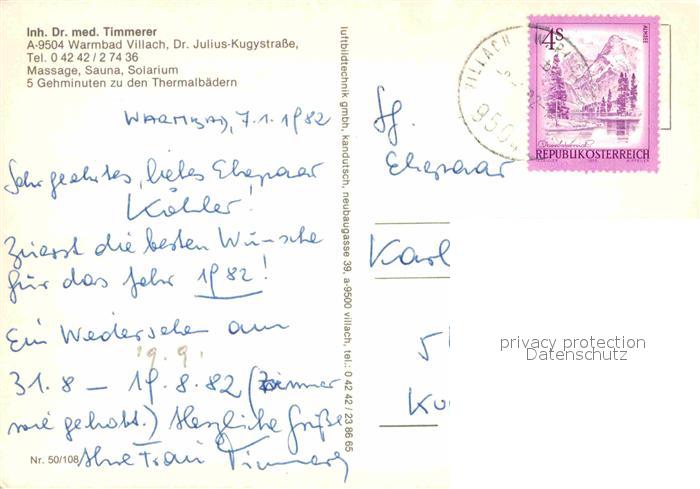 Inh. Dr. med. Timmerer
A-9504 Warmbad Villach, Dr. Julius-Kugystraße,
Tel. 0 42 42 / 2 74 36
Massage, Sauna, Solarium
5 Gehminuten zu den Thermalbädern
WARMBAD, 7.1.1982
Sehr geehrtes, liebes Ehepaar
Köhler!
Zuerst die besten Wünsche
für das Jahr 1982!
Ein Wiedersehen am
19.9.
31.8 – 19.8.82 (Zimmer
wie gehabt.) Herzliche Grüße
Ihre Frau Timmerer
Nr. 50/108
luftbildtechnik gmbh, kandutsch, neubaugasse 39, a-9500 villach, tel.: 0 42 42 / 23 86 65
VILLACH
9504
4s
ALMSEE
REPUBLIK ÖSTERREICH
Sg.
Ehepaar
Karl
5
privacy protection
Datenschutz